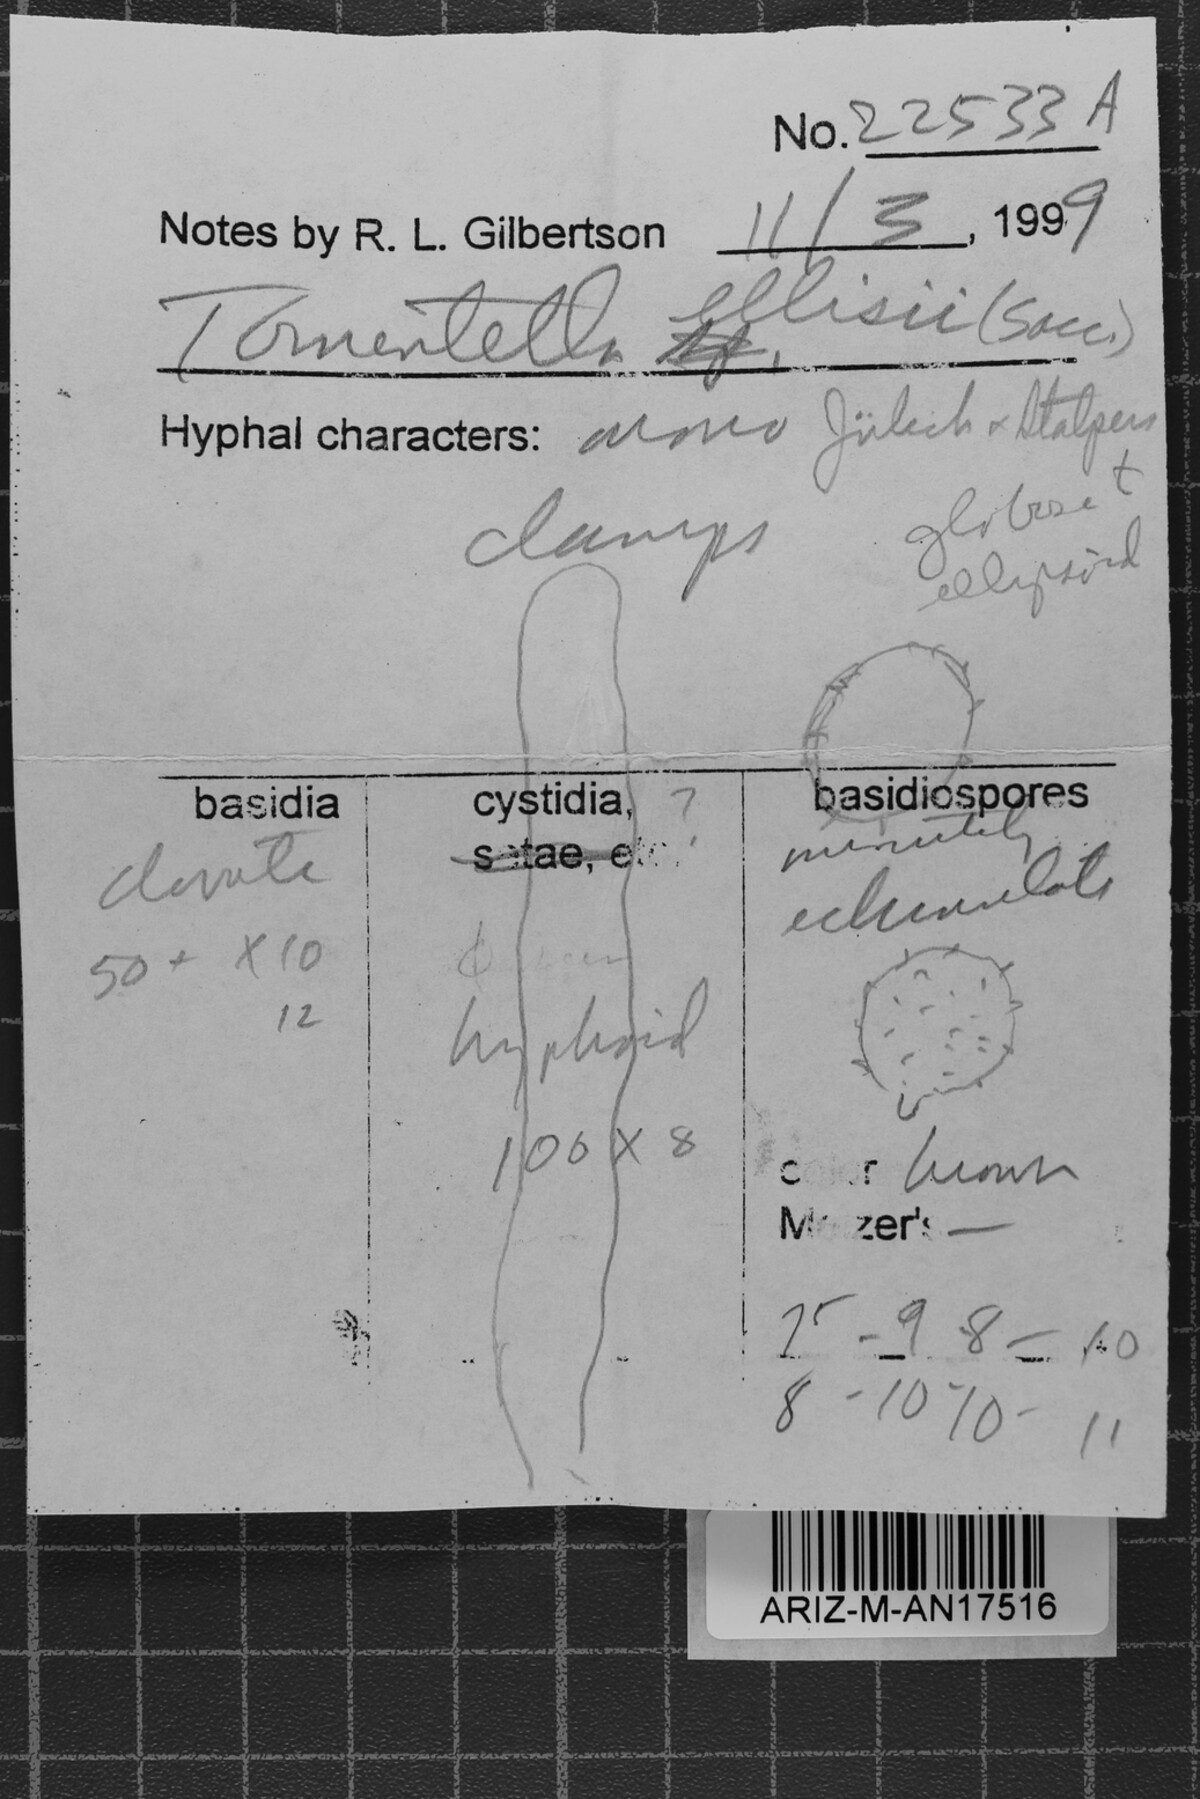 No. 22533 A
Notes by R. L. Gilbertson 11/3, 1999
Tomentella ellisii (Sacc.)
Hyphal characters: mono Jülich & Stalpers
clamps
globose +
ellipsoid
basidia
cystidia, ?
setae, etc.
basidiospores
clavate
minutely
echinulate
50+ X 10
12
hyphoid
100 X 8
color brown
Melzer's —
75 - 9 8 - 10
8 - 10 10 - 11
ARIZ-M-AN17516